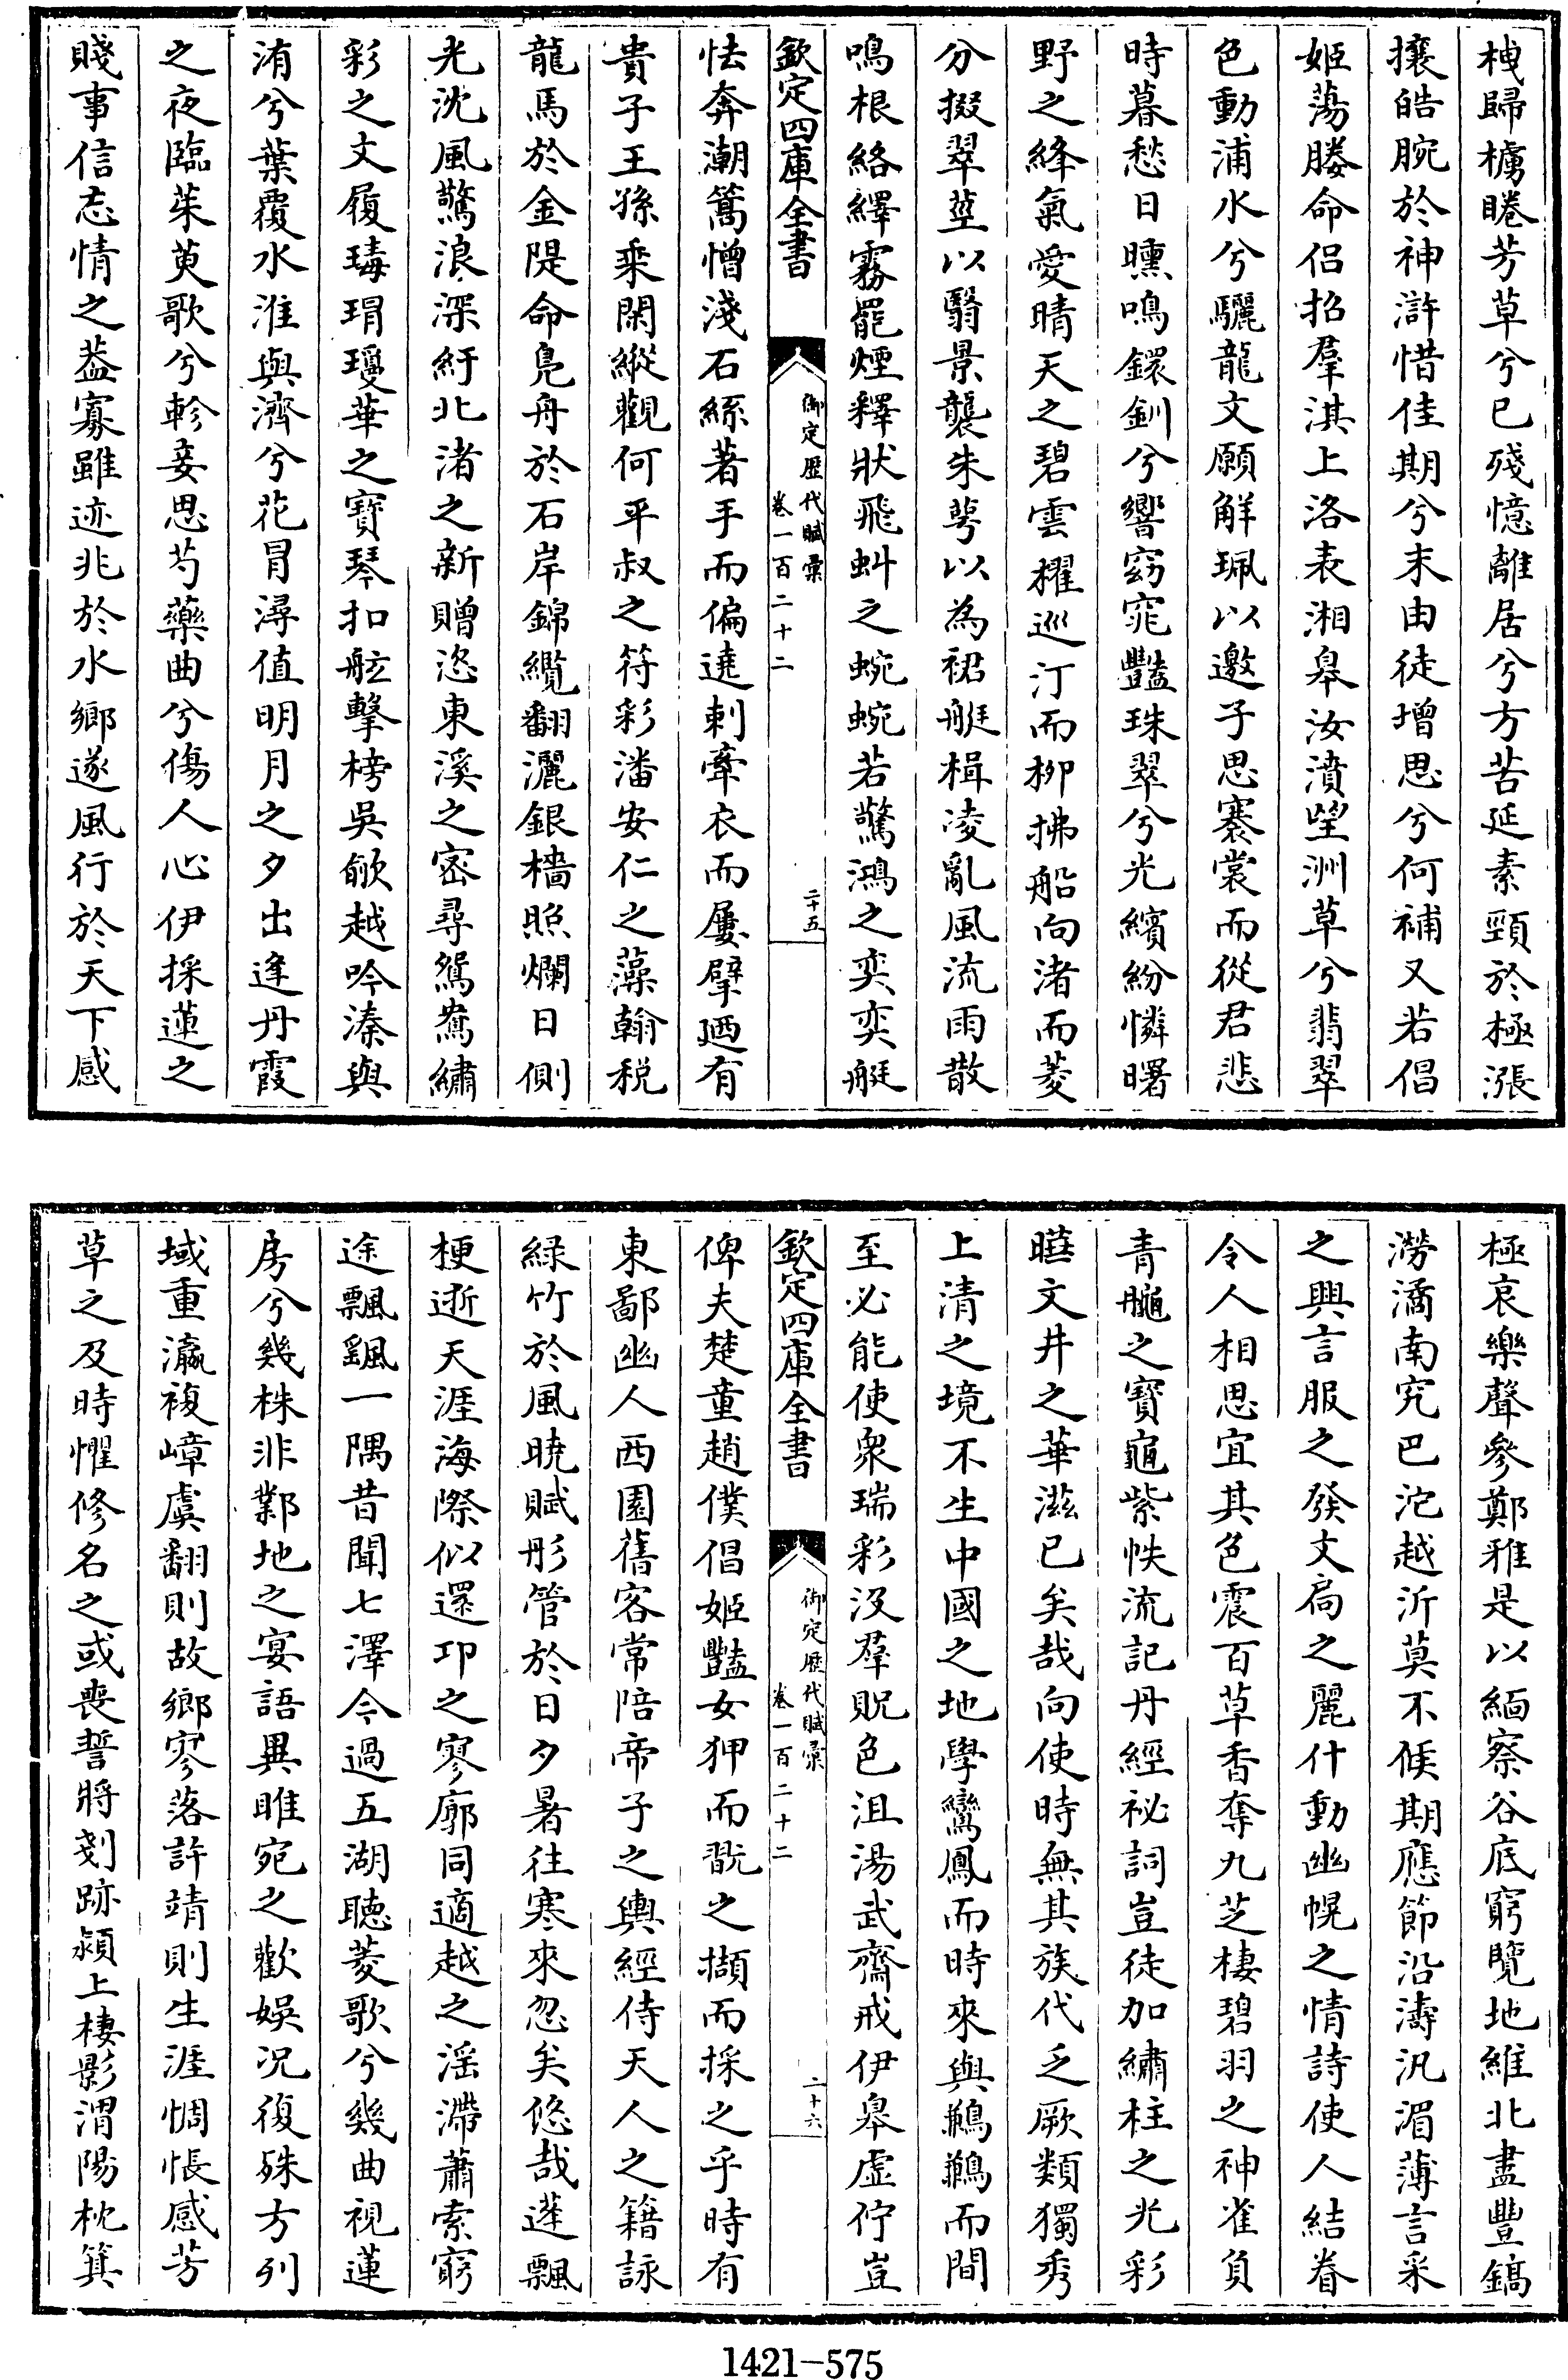 栧歸櫓睠芳草兮已殘憶離居兮方苦延素頸於極漲
攘皓腕於神滸惜佳期兮末由徒增思兮何補又若倡
姬蕩媵命侣招羣淇上洛表湘皋汝濆望洲草兮翡翠
色動浦水兮驪龍文願解珮以邀子思褰裳而從君悲
時暮愁日曛鳴鐶釧兮響窈窕艷珠翠兮光繽紛憐曙
野之絳氣愛晴天之碧雲櫂巡汀而栁拂船向渚而菱
分掇翠莖以翳景襲朱萼以為裙艇楫凌亂風流雨散
鳴根絡繹霧罷煙釋狀飛虯之蜿蜿若驚鴻之奕奕艇
欽定四庫全書
御定歷代賦彙
卷一百二十二
二十五
怯奔潮篙憎淺石絲著手而偏遶刺牽衣而屢擘廼有
貴子王孫乘閑縱觀何平叔之符彩潘安仁之藻翰税
龍馬於金隄命鳧舟於石岸錦纜翻灑銀檣照爛日側
光沈風驚浪深紆北渚之新贈恣東溪之密尋鴛鴦繡
彩之文履瑇瑁瓊華之寶琴扣舷擊榜吳歈越吟溱與
洧兮葉覆水淮與濟兮花冒潯值明月之夕出逢丹霞
之夜臨茱萸歌兮軫妾思芍藥曲兮傷人心伊採蓮之
賤事信忘情之葢寡雖迹兆於水鄉遂風行於天下感
極哀樂聲參鄭雅是以緬察谷底窮覽地維北盡豐鎬
澇潏南究巴沱越沂莫不候期應節沿濤汎湄薄言采
之興言服之發文扃之麗什動幽幌之情詩使人結眷
令人相思宜其色震百草香奪九芝棲碧羽之神雀負
青𪓟之寶龜紫帙流記丹經祕詞豈徒加繡柱之光彩
曄文井之華滋已矣哉向使時無其族代乏厥類獨秀
上清之境不生中國之地學鸞鳳而時來與鶼鶼而間
至必能使衆瑞彩没羣貺色沮湯武齋戒伊皋虛佇豈
欽定四庫全書
御定歷代賦彙
卷一百二十二
二十六
俾夫楚童趙僕倡姬艷女狎而翫之擷而採之乎時有
東鄙幽人西園舊客常陪帝子之輿經侍天人之籍詠
緑竹於風曉賦彤管於日夕暑往寒來忽矣悠哉蓬飄
梗逝天涯海際似還卭之寥廓同適越之滛滯蕭索窮
途飄颻一隅昔聞七澤今過五湖聽菱歌兮幾曲視蓮
房兮幾株非鄴地之宴語異睢宛之歡娛况復殊方列
域重瀛複嶂虞翻則故鄉寥落許靖則生涯惆悵感芳
草之及時懼修名之或喪誓將刬跡潁上棲影渭陽枕箕
1421-575